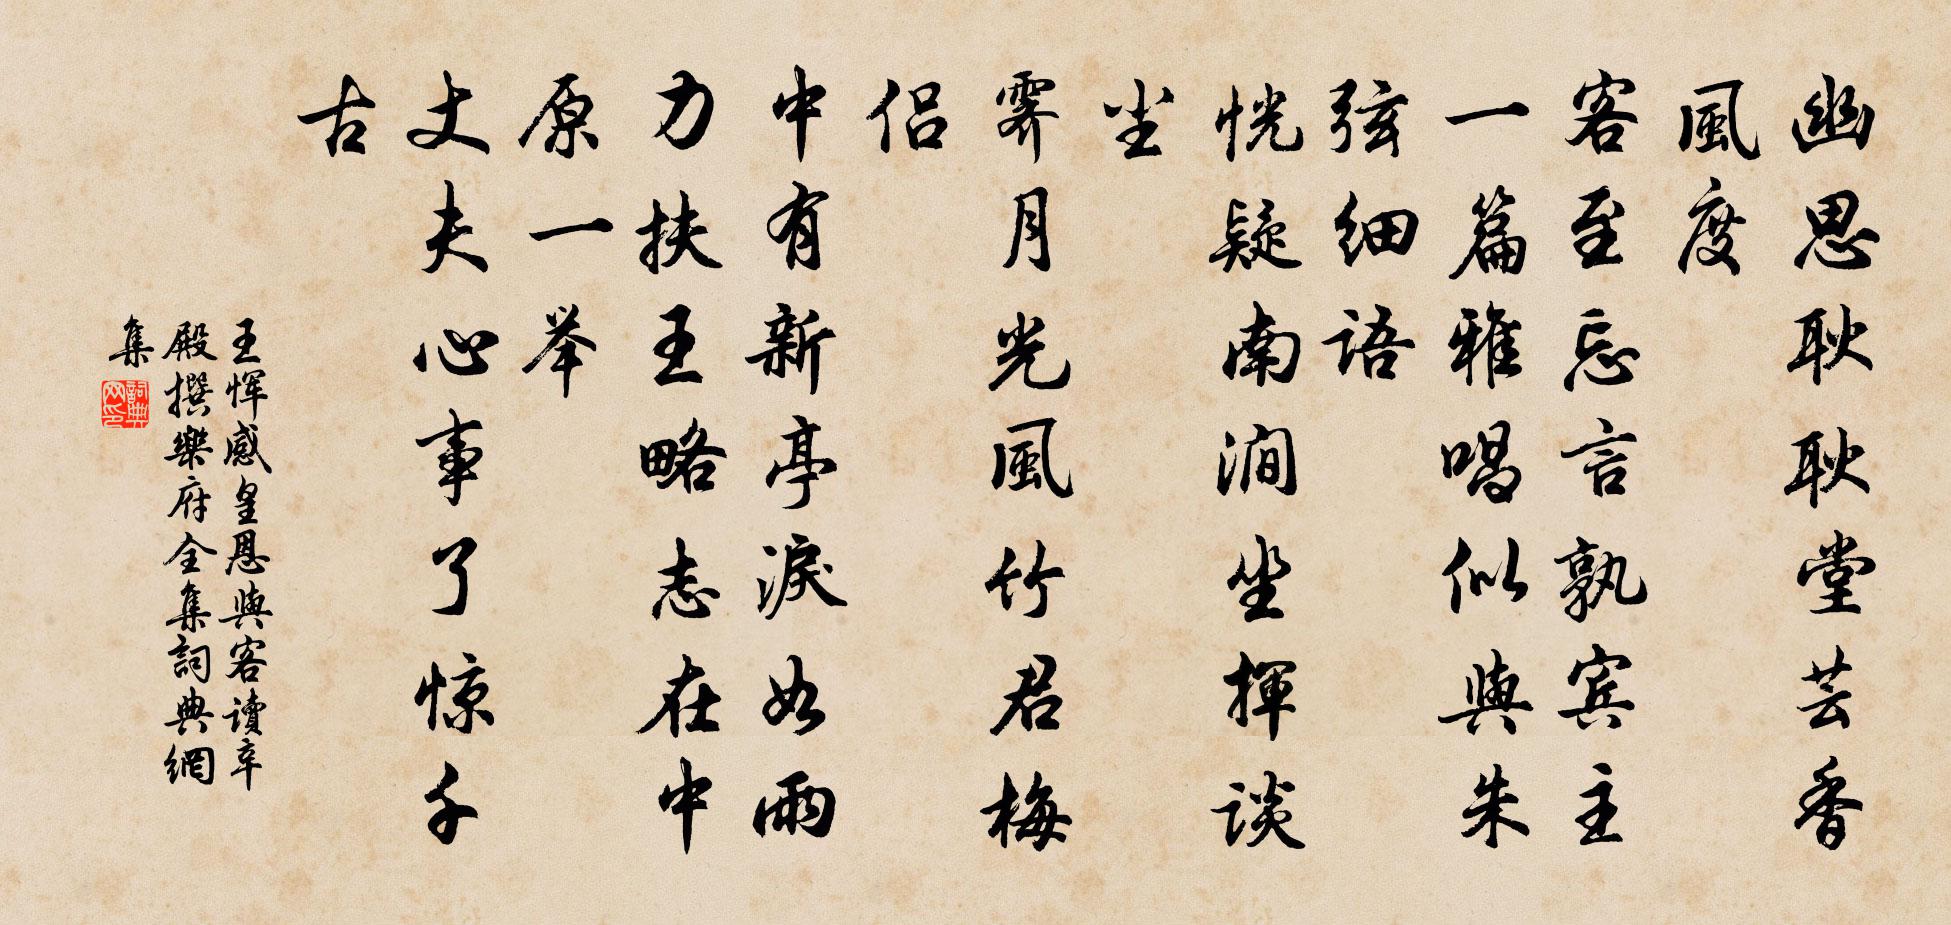 幽思耿耿堂芸香
風度
客至忘言孰宾主
一篇雅唱似與朱
弦细語
恍疑南澗坐揮談
尘
霁月光風竹君梅
侣
中有新亭淚如雨
力扶王略志在中
原一举
丈夫心事了惊千
古
王恽感皇恩與客讀辛
殿撰樂府全集詞典網
集
詞典
网印